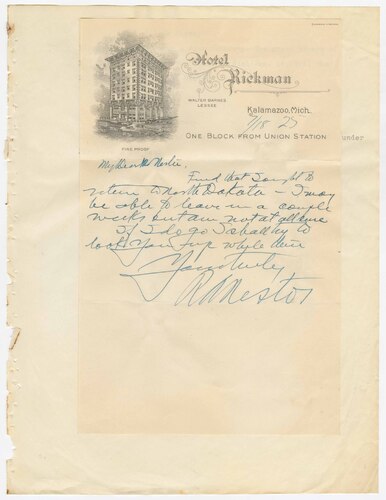 Hotel
Rickman
WALTER BARNES
LESSEE
Kalamazoo, Mich.
7/18 27
ONE BLOCK FROM UNION STATION
under
FIRE PROOF
My Dear Mr
Find that I ought to
return to North Dakota – I may
be able to leave in a couple
weeks but am not at all sure
If I do go I shall try to
look you up while there
Yours truly
R A Nestos